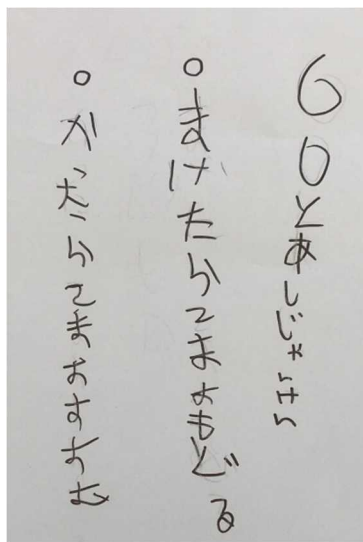 6 0とあしじゃんけん
○まけたら2ますもどる
○かったら2ますすすむ